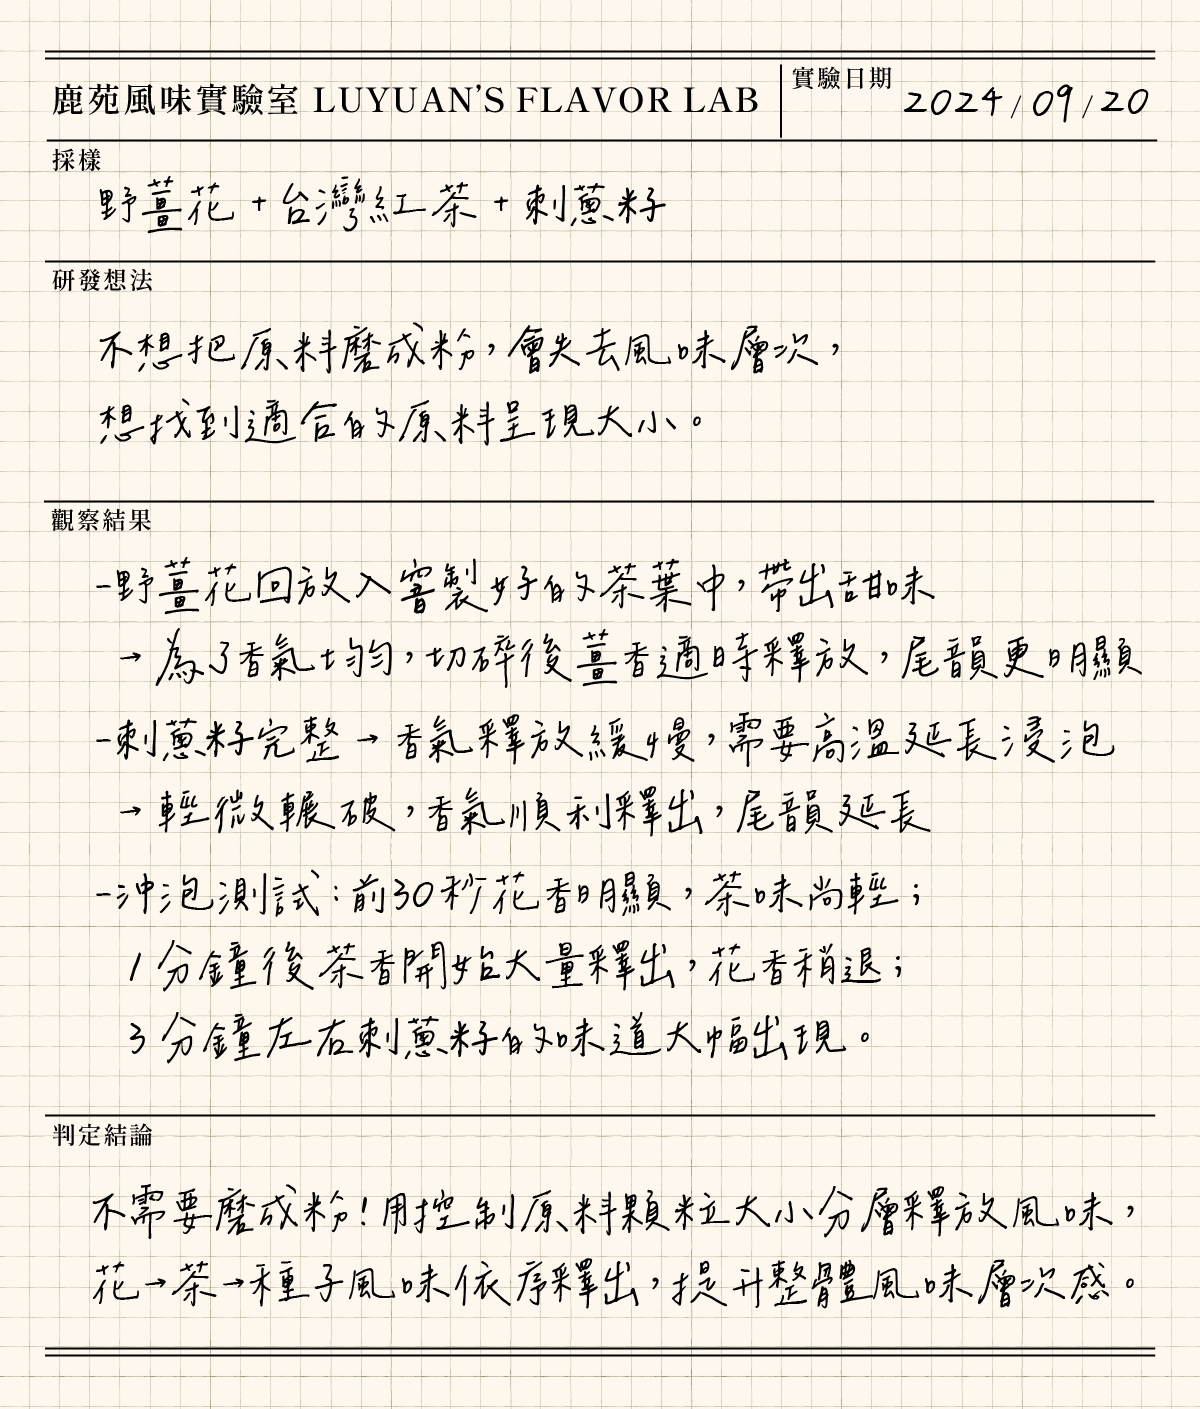 鹿苑風味實驗室 LUYUAN'S FLAVOR LAB
實驗日期 2024/09/20
採樣
野薑花+台灣紅茶+刺蔥籽
研發想法
不想把原料磨成粉,會失去風味層次,
想找到適合的原料呈現大小。
觀察結果
-野薑花回放入窨製好的茶葉中,帶出甜味
→為了香氣均勻,切碎後薑香適時釋放,尾韻更明顯
-刺蔥籽完整→香氣釋放緩慢,需要高溫延長浸泡
→輕微輾破,香氣順利釋出,尾韻延長
-沖泡測試:前30秒花香明顯,茶味尚輕;
1分鐘後茶香開始大量釋出,花香稍退;
3分鐘左右刺蔥籽的味道大幅出現。
判定結論
不需要磨成粉!用控制原料顆粒大小分層釋放風味,
花→茶→種子風味依序釋出,提升整體風味層次感。